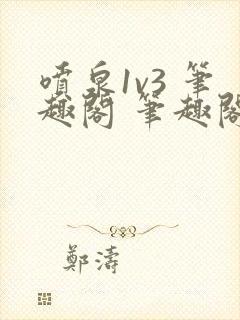 噴泉1v3 筆
趣閣 筆趣閣
鄭濤